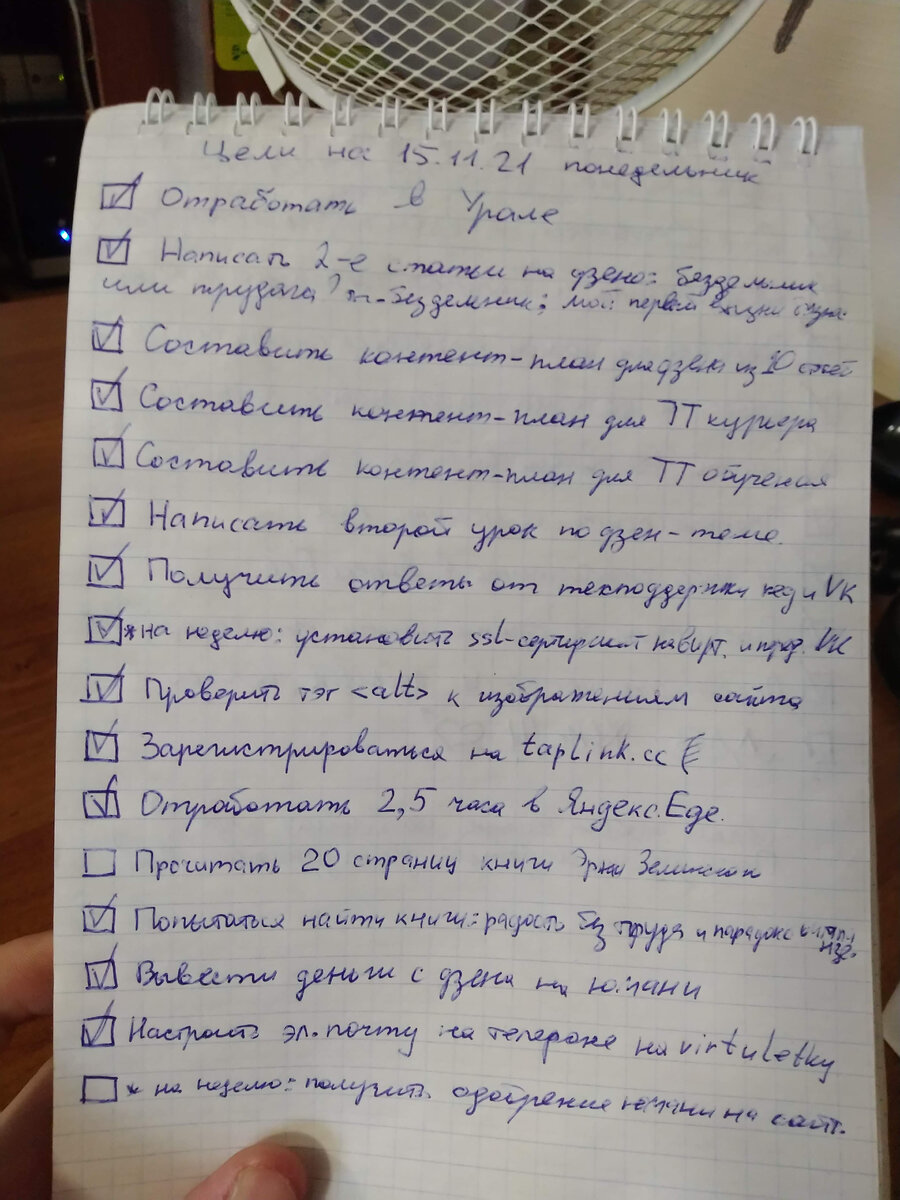 Цели на 15.11.21 понедельник
Отработать в Урале
Написать 2-е статьи на дзено: бездельник
или трудяга? я-бездельник; мой первый
Составить контент-план для дзена из 10 статей
Составить контент-план для ТТ курьера
Составить контент-план для ТТ обучения
Написать второй урок по дзен-теме.
Получить ответы от техподдержки и VK
*на неделю: установить ssl-сертификат на вирт. и VK
Проверить тэг <alt> к изображениям сайта
Зарегистрироваться на taplink.cc
Отработать 2,5 часа в Яндекс.Еде.
Прочитать 20 страниц книги Эрни Зелински
Попытаться найти книги: радость без труда и парадокс
Вывести деньги с дзена на юмани
Настроить эл.почту на телефоне на virtuletky
* на неделю: получить одобрение юмани на сайт.